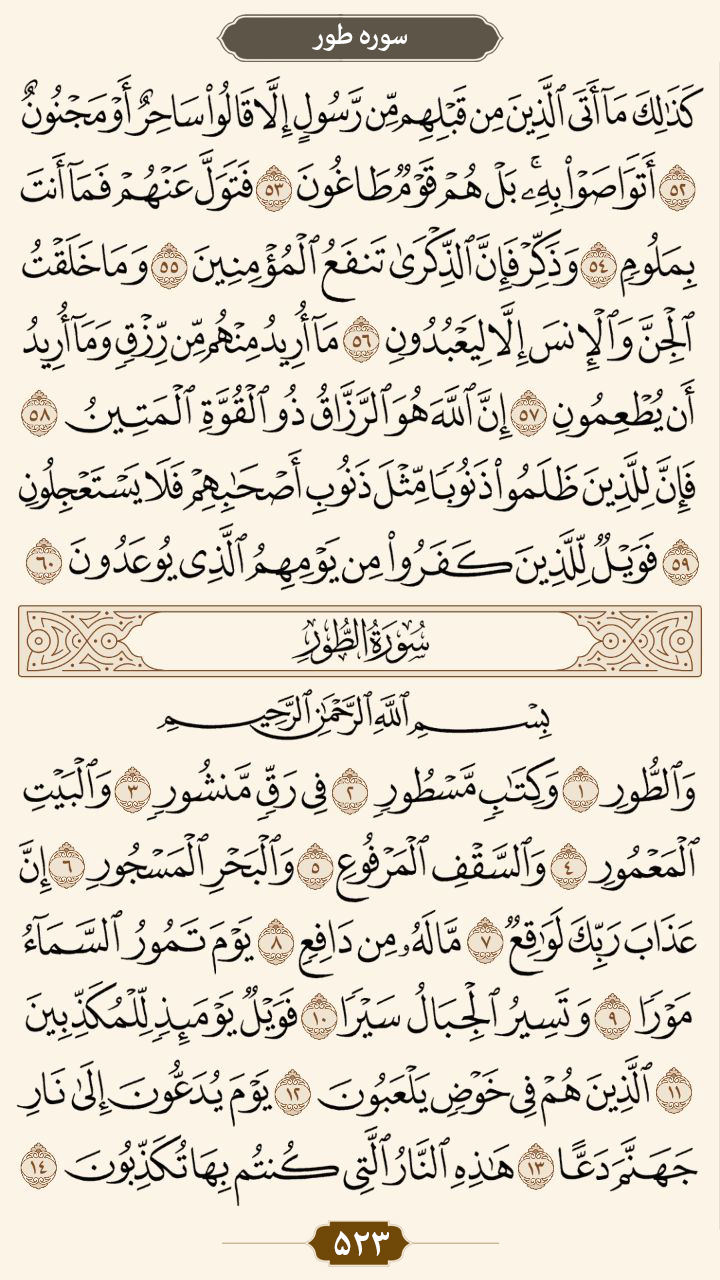 سوره طور
كَذَٰلِكَ مَآ أَتَى ٱلَّذِينَ مِن قَبْلِهِم مِّن رَّسُولٍ إِلَّا قَالُوا۟ سَاحِرٌ أَوْ مَجْنُونٌ
٥٢ أَتَوَاصَوْا۟ بِهِۦ ۚ بَلْ هُمْ قَوْمٌ طَاغُونَ ٥٣ فَتَوَلَّ عَنْهُمْ فَمَآ أَنتَ
بِمَلُومٍ ٥٤ وَذَكِّرْ فَإِنَّ ٱلذِّكْرَىٰ تَنفَعُ ٱلْمُؤْمِنِينَ ٥٥ وَمَا خَلَقْتُ
ٱلْجِنَّ وَٱلْإِنسَ إِلَّا لِيَعْبُدُونِ ٥٦ مَآ أُرِيدُ مِنْهُم مِّن رِّزْقٍ وَمَآ أُرِيدُ
أَن يُطْعِمُونِ ٥٧ إِنَّ ٱللَّهَ هُوَ ٱلرَّزَّاقُ ذُو ٱلْقُوَّةِ ٱلْمَتِينُ ٥٨
فَإِنَّ لِلَّذِينَ ظَلَمُوا۟ ذَنُوبًا مِّثْلَ ذَنُوبِ أَصْحَٰبِهِمْ فَلَا يَسْتَعْجِلُونِ
٥٩ فَوَيْلٌ لِّلَّذِينَ كَفَرُوا۟ مِن يَوْمِهِمُ ٱلَّذِى يُوعَدُونَ ٦٠
سُورَةُ الطُّورِ
بِسْمِ ٱللَّهِ ٱلرَّحْمَٰنِ ٱلرَّحِيمِ
وَٱلطُّورِ ١ وَكِتَٰبٍ مَّسْطُورٍ ٢ فِى رَقٍّ مَّنشُورٍ ٣ وَٱلْبَيْتِ
ٱلْمَعْمُورِ ٤ وَٱلسَّقْفِ ٱلْمَرْفُوعِ ٥ وَٱلْبَحْرِ ٱلْمَسْجُورِ ٦ إِنَّ
عَذَابَ رَبِّكَ لَوَٰقِعٌ ٧ مَّا لَهُۥ مِن دَافِعٍ ٨ يَوْمَ تَمُورُ ٱلسَّمَآءُ
مَوْرًا ٩ وَتَسِيرُ ٱلْجِبَالُ سَيْرًا ١٠ فَوَيْلٌ يَوْمَئِذٍ لِّلْمُكَذِّبِينَ
١١ ٱلَّذِينَ هُمْ فِى خَوْضٍ يَلْعَبُونَ ١٢ يَوْمَ يُدَعُّونَ إِلَىٰ نَارِ
جَهَنَّمَ دَعًّا ١٣ هَٰذِهِ ٱلنَّارُ ٱلَّتِى كُنتُم بِهَا تُكَذِّبُونَ ١٤
۵۲۳